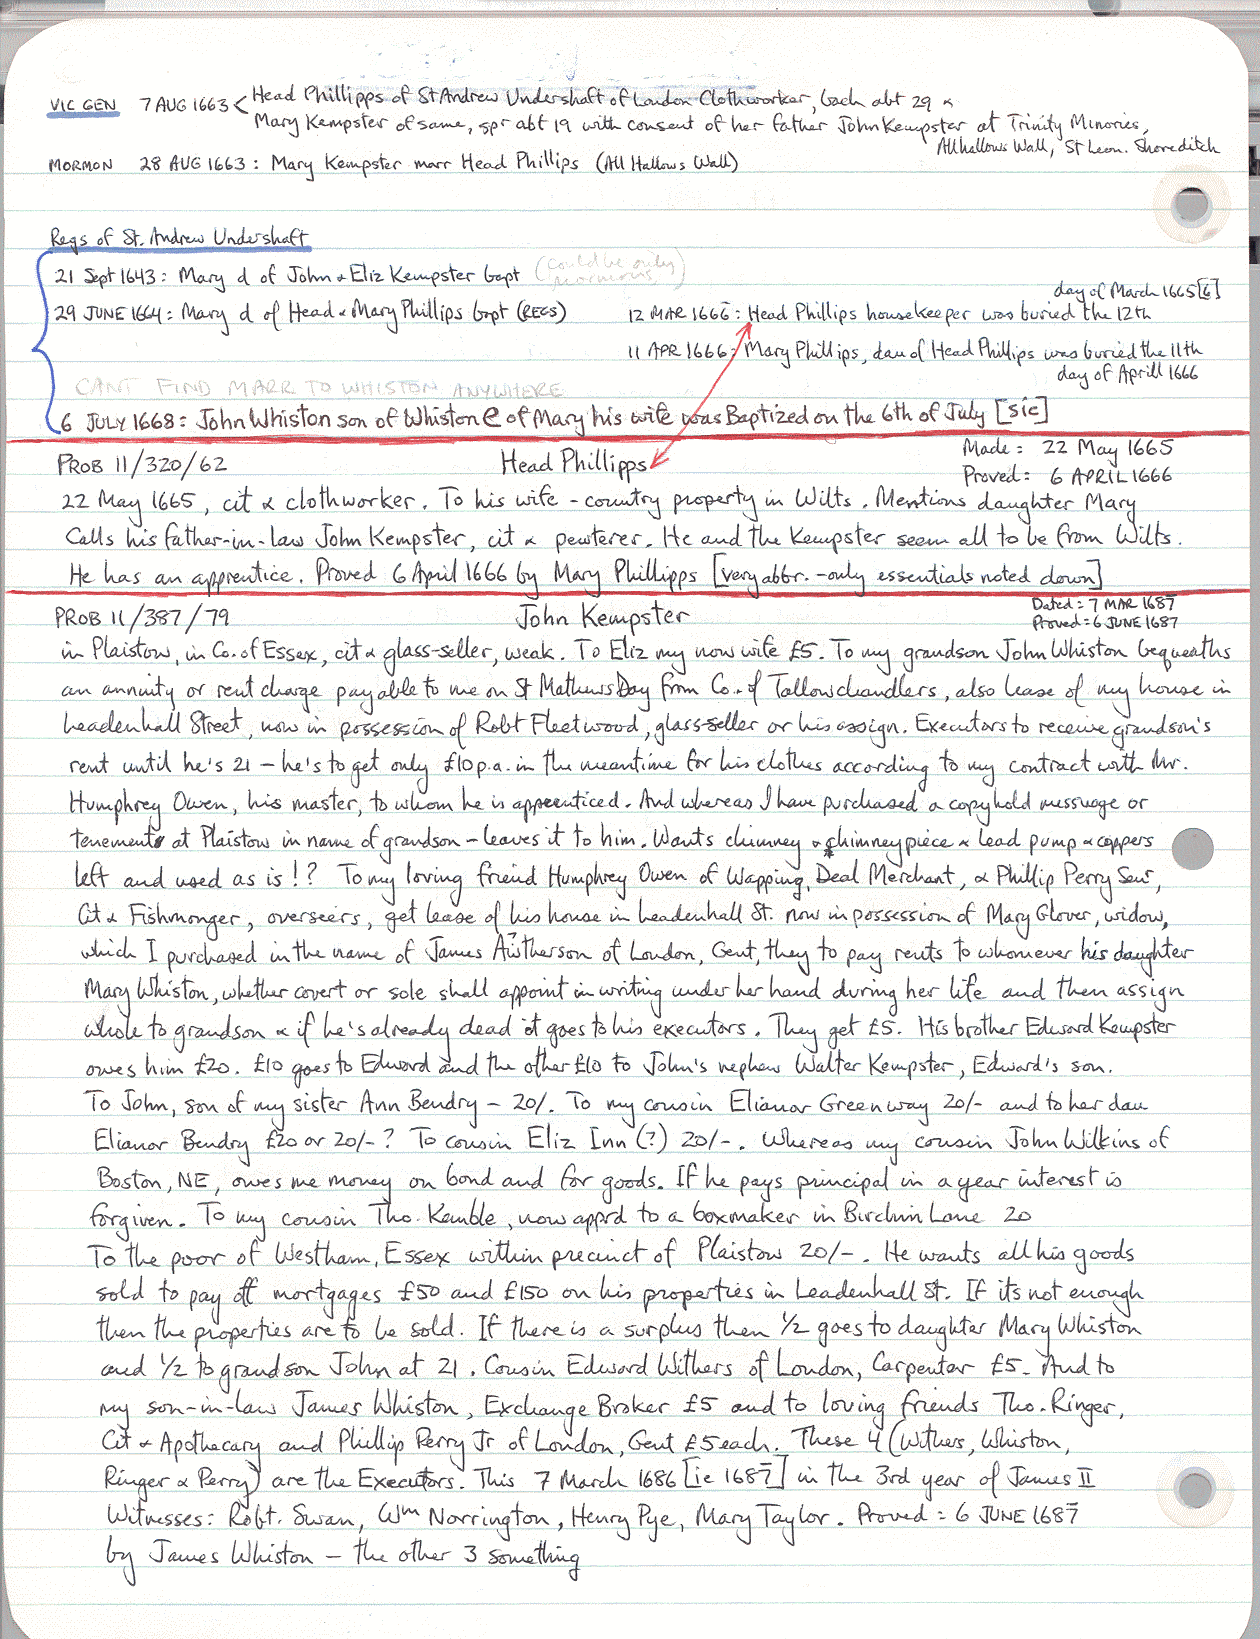 VIC GEN 7 AUG 1663 < Head Phillipps of St Andrew Undershaft of London Clothworker, bach abt 29 &
Mary Kempster of same, spr abt 19 with consent of her father John Kempster at Trinity Minories,
All hallows Wall, St Leon. Shoreditch
MORMON 28 AUG 1663: Mary Kempster marr Head Phillips (All Hallows Wall)
Regs of St. Andrew Undershaft
21 Sept 1643: Mary d of John & Eliz Kempster bapt (could be only
enormous)
day of March 1665[6]
29 JUNE 1664: Mary d of Head & Mary Phillips bapt (REGS) 12 MAR 1666: Head Phillips housekeeper was buried the 12th
11 APR 1666: Mary Phillips, dau of Head Phillips was buried the 11th
day of Aprill 1666
CANT FIND MARR TO WHISTON ANYWHERE
6 JULY 1668: John Whiston son of Whiston & of Mary his wife was Baptized on the 6th of July [sic]
PROB 11/320/62 Head Phillipps Made: 22 May 1665
Proved: 6 APRIL 1666
22 May 1665, cit & clothworker. To his wife - country property in Wilts. Mentions daughter Mary
Calls his father-in-law John Kempster, cit & pewterer. He and the Kempster seem all to be from Wilts.
He has an apprentice. Proved 6 April 1666 by Mary Phillipps [very abbr. - only essentials noted down]
PROB 11/387/79 John Kempster Dated: 7 MAR 1687
Proved: 6 JUNE 1687
in Plaistow, in Co. of Essex, cit & glass-seller, weak. To Eliz my now wife £5. To my grandson John Whiston bequeaths
an annuity or rent charge payable to me on St Mathews Day from Co. of Tallowchandlers, also lease of my house in
Leadenhall Street, now in possession of Robt Fleetwood, glass-seller or his assign. Executors to receive grandson's
rent until he's 21 - he's to get only £10 p.a. in the meantime for his clothes according to my contract with Mr.
Humphrey Owen, his master, to whom he is apprenticed. And whereas I have purchased a copyhold messuage or
tenement at Plaistow in name of grandson - leaves it to him. Wants chimney & chimneypiece & lead pump & coppers
left and used as is!? To my loving friend Humphrey Owen of Wapping, Deal Merchant, & Phillip Perry Senr,
Cit & Fishmonger, overseers, get lease of his house in Leadenhall St. now in possession of Mary Glover, widow,
which I purchased in the name of James Awtherson of London, Gent, they to pay rents to whomever his daughter
Mary Whiston, whether covert or sole shall appoint in writing under her hand during her life and then assign
whole to grandson & if he's already dead it goes to his executors. They get £5. His brother Edward Kempster
owes him £20. £10 goes to Edward and the other £10 to John's nephew Walter Kempster, Edward's son.
To John, son of my sister Ann Bendry - 20/. To my cousin Elianor Greenway 20/- and to her dau
Elianor Bendry £20 or 20/-? To cousin Eliz Inn (?) 20/-. Whereas my cousin John Wilkins of
Boston, NE, owes me money on bond and for goods. If he pays principal in a year interest is
forgiven. To my cousin Tho. Kemble, now apprd to a boxmaker in Birchin Lane 20
To the poor of Westham, Essex within precinct of Plaistow 20/-. He wants all his goods
sold to pay off mortgages £50 and £150 on his properties in Leadenhall St. If its not enough
then the properties are to be sold. If there is a surplus then 1/2 goes to daughter Mary Whiston
and 1/2 to grandson John at 21. Cousin Edward Withers of London, Carpentar £5. And to
my son-in-law James Whiston, Exchange Broker £5 and to loving friends Tho. Ringer,
Cit & Apothecary and Phillip Perry Jr of London, Gent £5 each. These 4 (Withers, Whiston,
Ringer & Perry) are the Executors. This 7 March 1686 [ie 1687] in the 3rd year of James II
Witnesses: Robt. Swan, Wm Norrington, Henry Pye, Mary Taylor. Proved = 6 JUNE 1687
by James Whiston - the other 3 something